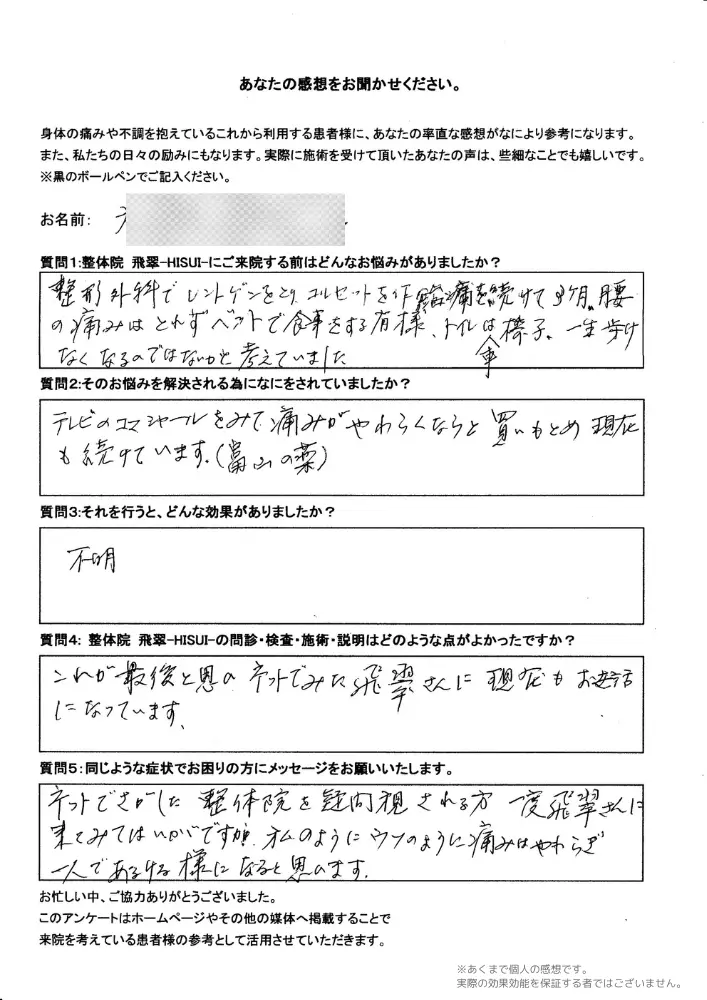 あなたの感想をお聞かせください。
身体の痛みや不調を抱えているこれから利用する患者様に、あなたの率直な感想がなにより参考になります。
また、私たちの日々の励みにもなります。実際に施術を受けて頂いたあなたの声は、些細なことでも嬉しいです。
※黒のボールペンでご記入ください。
お名前:
質問1:整体院 飛翠-HISUI-にご来院する前はどんなお悩みがありましたか?
整形外科でレントゲンをとり、コルセットを作 痛を続けて3ヶ月。腰
の痛みはとれずベットで食事をする有様、トイレは椅子。一生歩け
車
なくなるのではないかと考えていました
質問2:そのお悩みを解決される為になにをされていましたか?
テレビのコマーシャールをみて痛みがやわらくならと買いもとめ現在
も続けています。(富山の薬)
質問3:それを行うと、どんな効果がありましたか?
不明
質問4: 整体院 飛翠-HISUI-の問診・検査・施術・説明はどのような点がよかったですか?
これが最後と思いネットでみた飛翠さんに現在もお世話
になっています。
質問5:同じような症状でお困りの方にメッセージをお願いいたします。
ネットでさがした整体院を疑問視される方一度飛翠さんに
来てみてはいかがですか。私のようにウソのように痛みはやわらぎ
一人であるける様になると思います。
お忙しい中、ご協力ありがとうございました。
このアンケートはホームページやその他の媒体へ掲載することで
来院を考えている患者様の参考として活用させていただきます。
※あくまで個人の感想です。
実際の効果効能を保証する者ではございません。